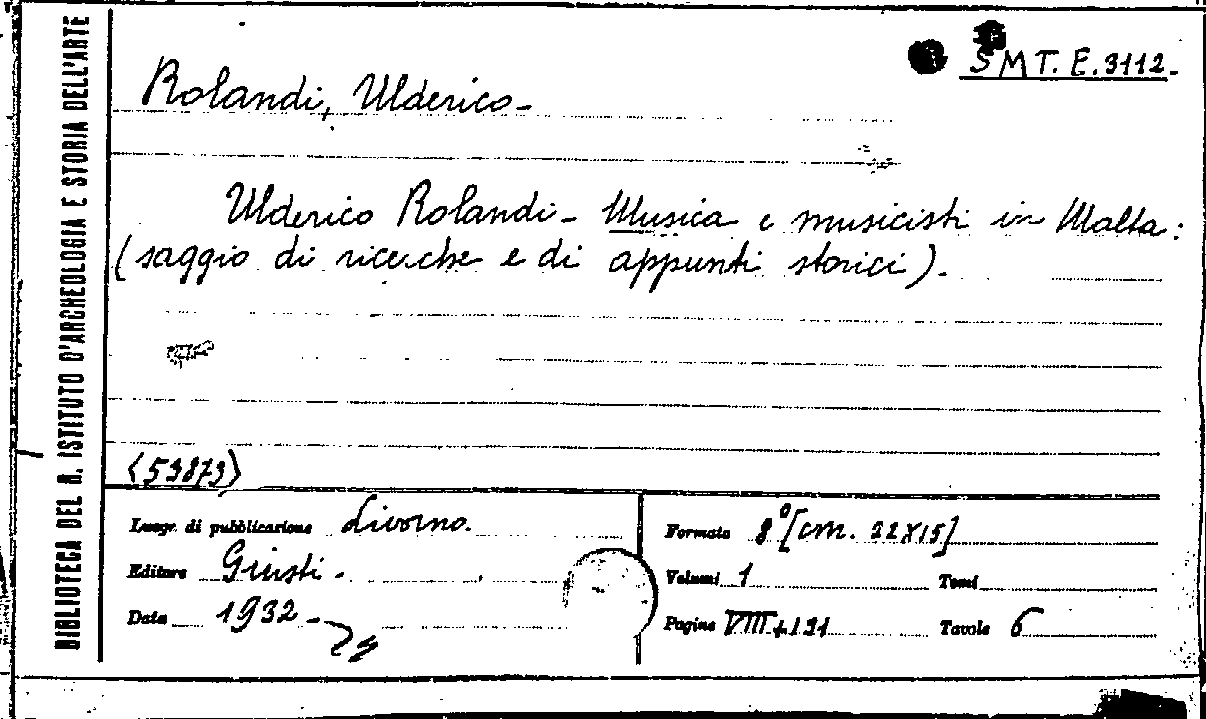 BIBLIOTECA DEL R. ISTITUTO D'ARCHEOLOGIA E STORIA DELL'ARTE
SMT. E. 3112.
Rolandi, Ulderico
Ulderico Rolandi - Musica e musicisti in Malta:
(saggio di ricerche e di appunti storici).
(53873)
Luogo di pubblicazione Livorno.
Editore Giusti.
Data 1932
Formato 8° [cm. 22x15]
Volumi 1 Tomi
Pagine VIII + 131
Tavole 6